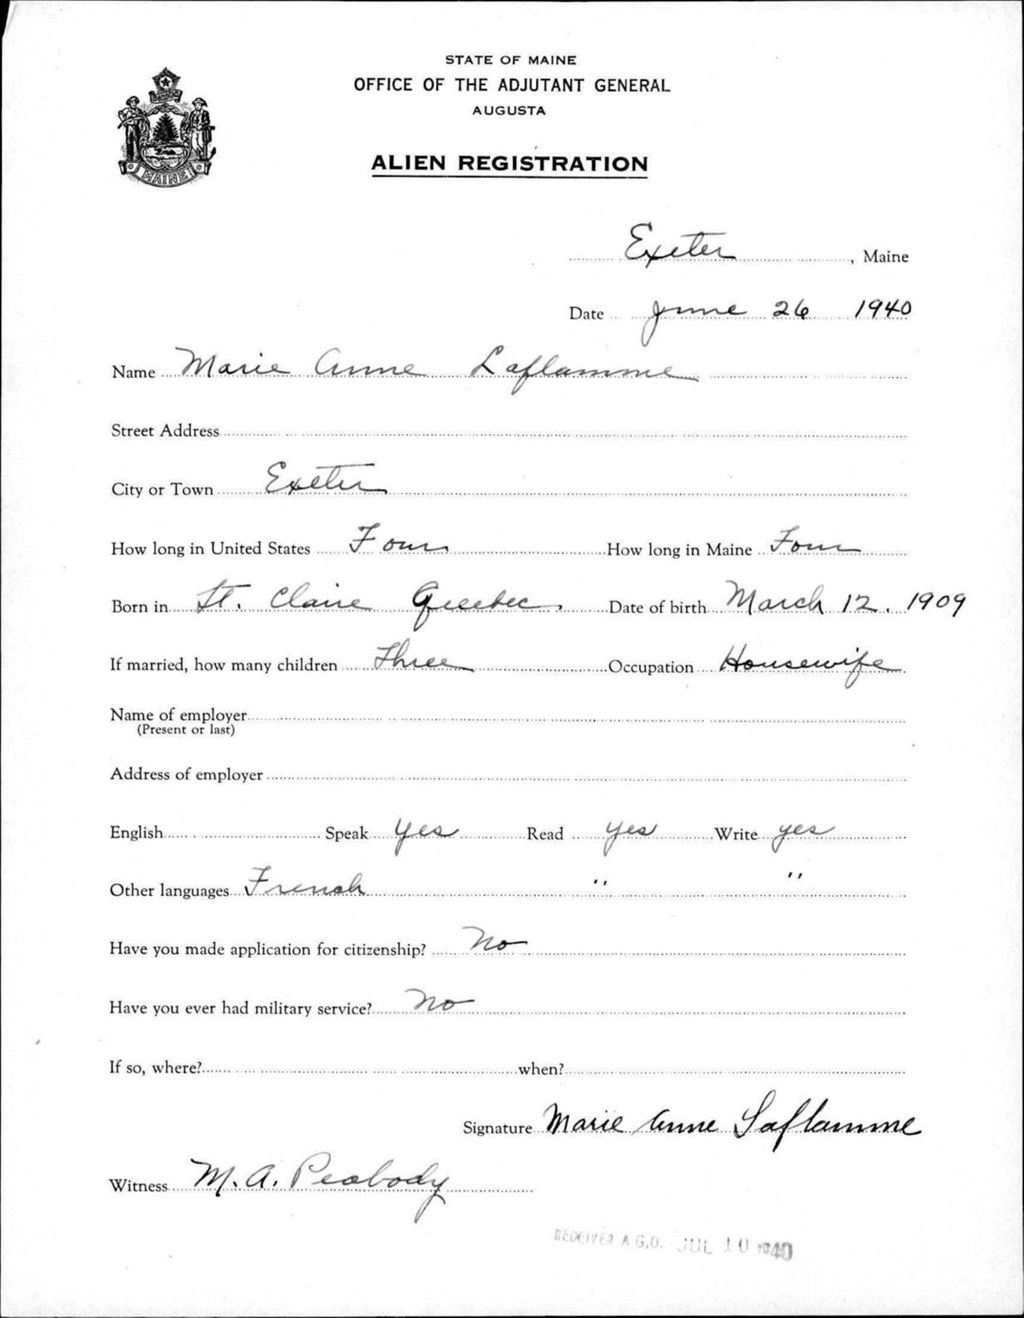 STATE OF MAINE
OFFICE OF THE ADJUTANT GENERAL
AUGUSTA
ALIEN REGISTRATION
MAINE
Exeter, Maine
Date June 26 1940
Name Marie Anne Laflamme
Street Address
City or Town Exeter
How long in United States Four How long in Maine Four
Born in St. Claire Quebec. Date of birth March 12. 1909
If married, how many children Three Occupation Housewife
Name of employer
(Present or last)
Address of employer
English Speak Yes Read yes Write yes
Other languages French " "
Have you made application for citizenship? No
Have you ever had military service? No
If so, where? when?
Signature Marie Anne Laflamme
Witness M. A. Peabody
RECEIVED A.G.O. JUL 10 1940